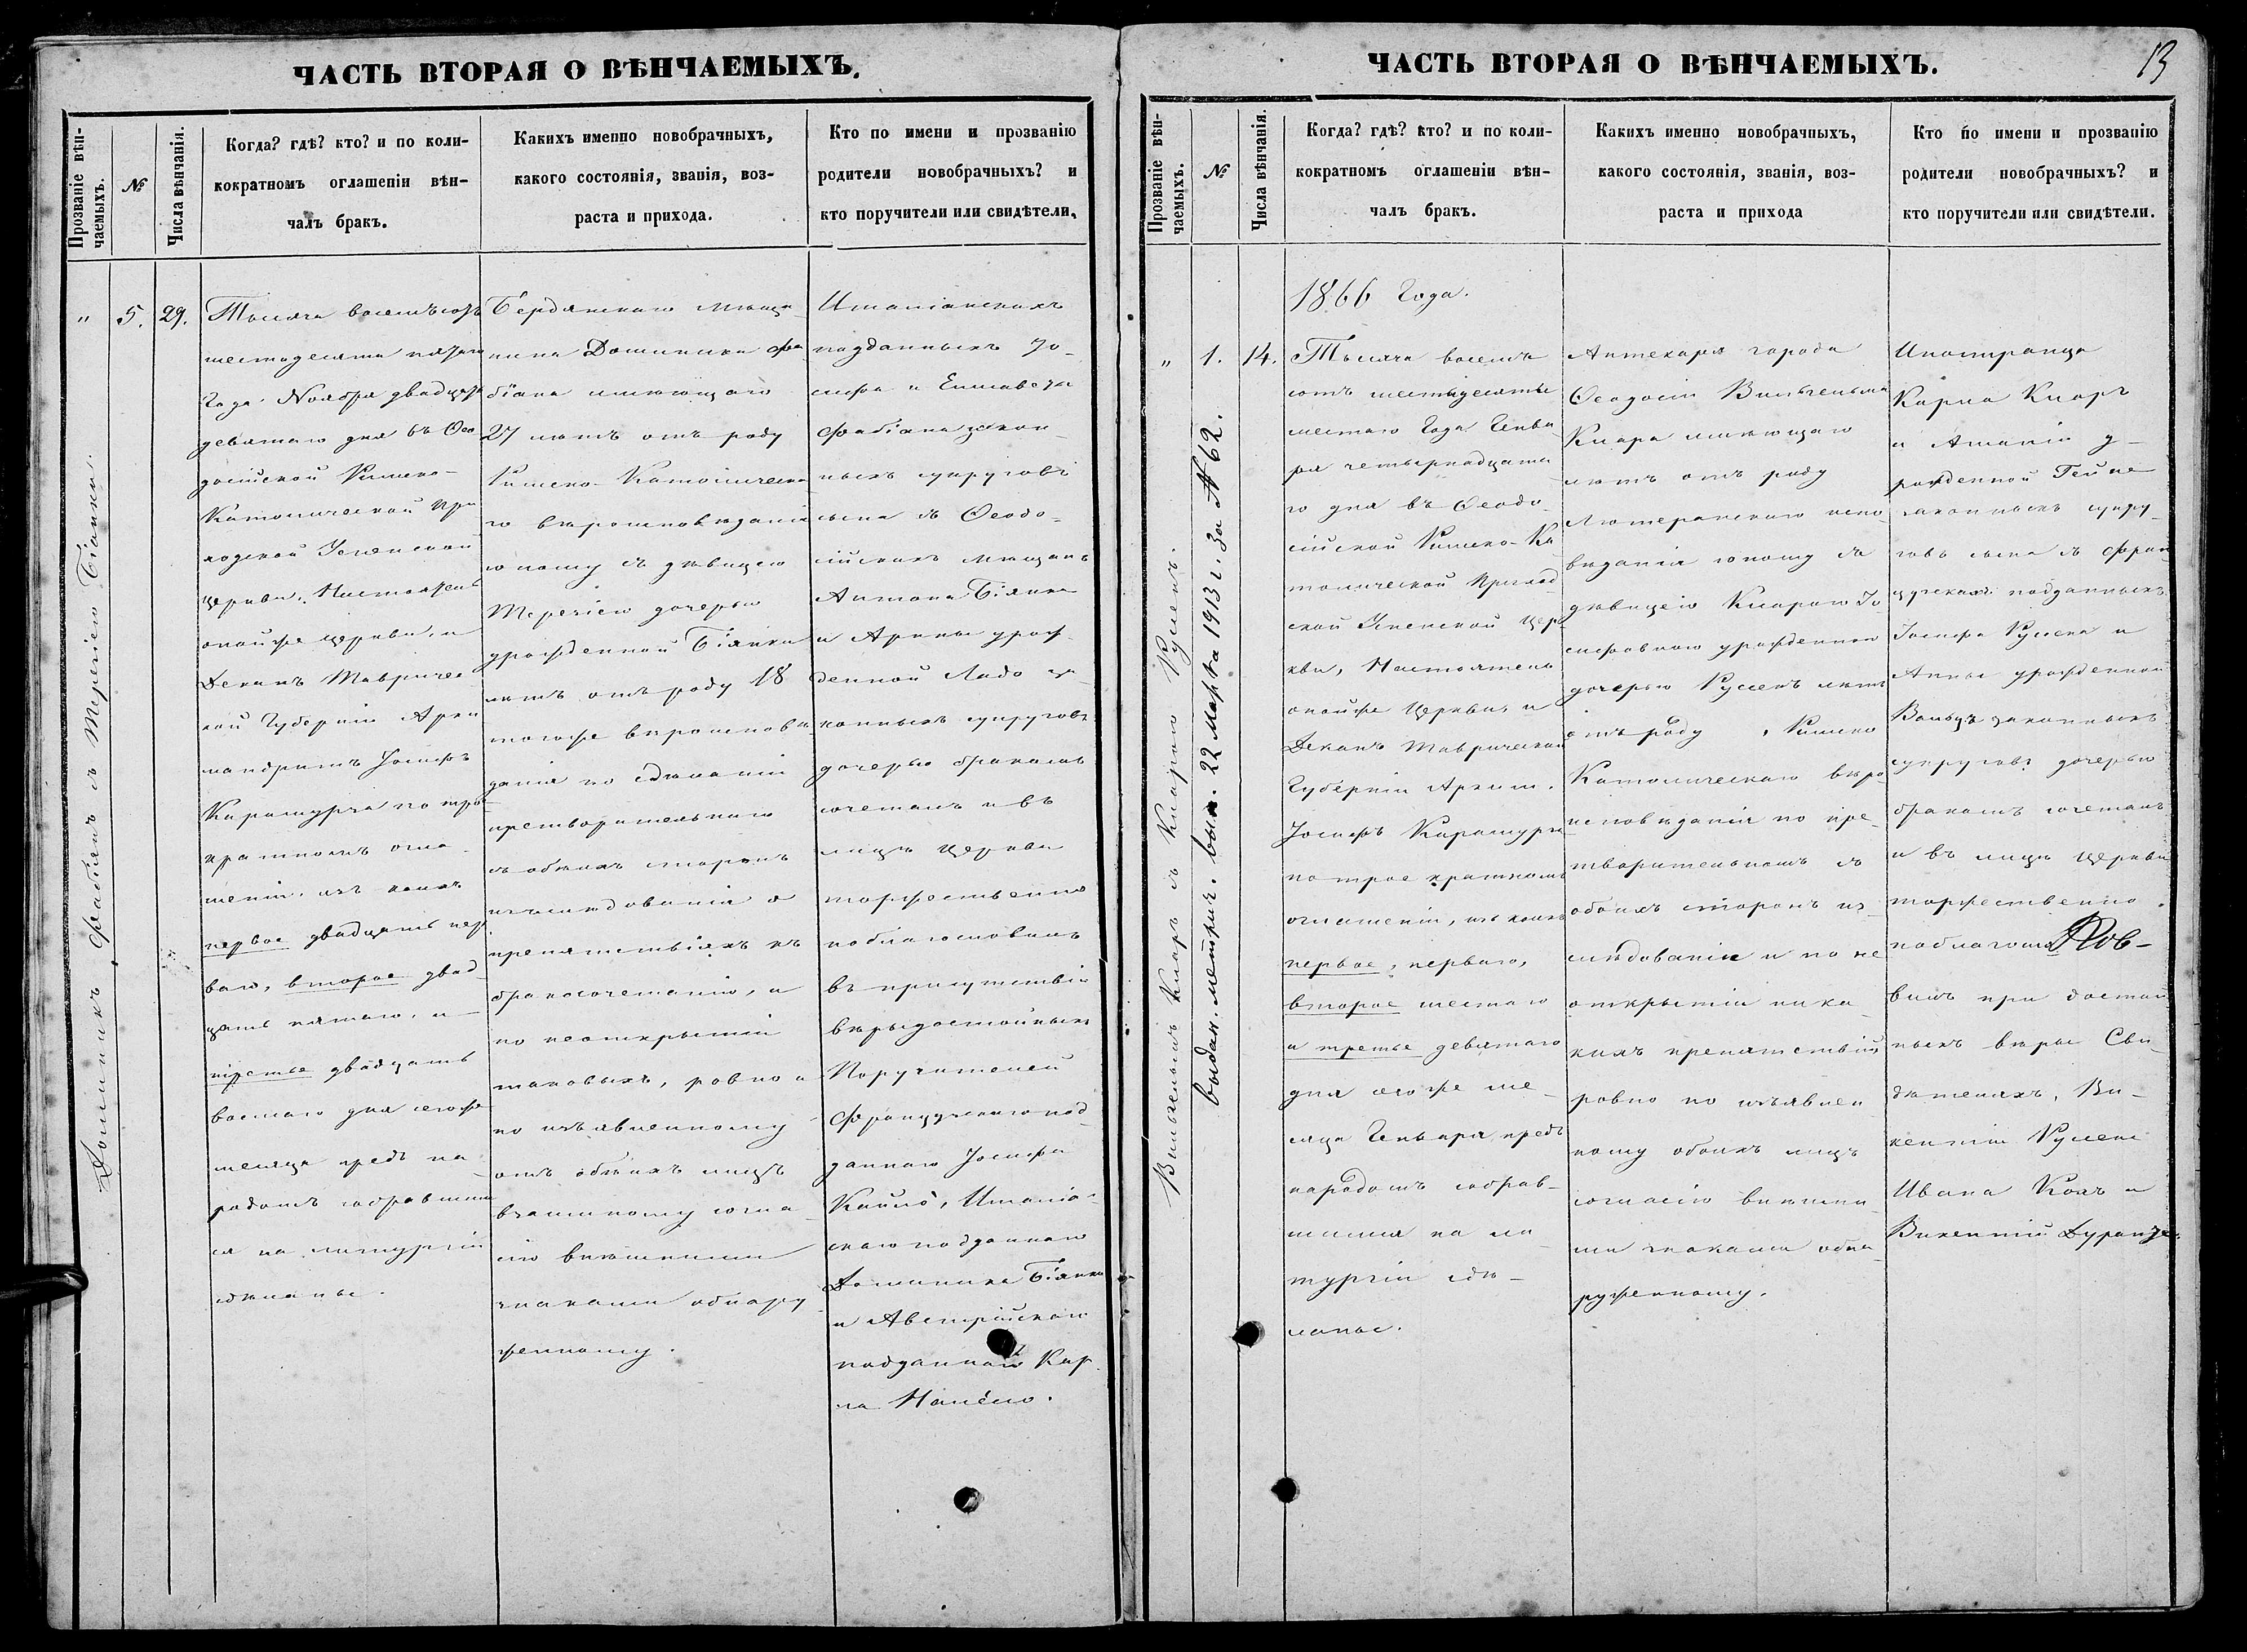 ЧАСТЬ ВТОРАЯ О ВѢНЧАЕМЫХЪ.
Прозваніе вѣн-
чаемыхъ.
№
Числа вѣнчанія.
Когда? гдѣ? кто? и по коли-
кократномъ оглашеніи вѣн-
чалъ бракъ.
Какихъ именно новобрачныхъ,
какого состоянія, званія, воз-
раста и прихода.
Кто по имени и прозванію
родители новобрачныхъ? и
кто поручители или свидѣтели.
"
Доминикъ Фабіянъ съ Терезіею Біянки.
5.
29.
Тысяча восемьсотъ
шестьдесятъ пятаго
Года Ноября двадцать
девятаго дня въ Ѳео
досійской Римско-
Католической При
ходской Успенской
церкви, Настоятель
онойже церкви, и
Деканъ Тавричес
кой Губерніи Архи
мандритъ Іосифъ
по трое
кратномъ огла
шеніи, изъ коихъ
первое двадцать пер
ваго, второе двад
цать пятаго, и
третье двадцать
восмаго дня тогоже
месяца предъ на
родомъ собравшим
ся на литургіи
сдѣланы.
Бердянскаго мѣща
нина Доминика Фа
біана имѣющаго
27 лѣтъ отъ роду
Римско-Католическа
го вѣроисповѣданія
юношу съ дѣвицею
Терезіею дочерью
урожденной Біянки
лѣтъ отъ роду 18
тогоже вѣроисповѣ
данія по сдѣланіи
претворительнаго
съ обѣихъ сторонъ
изъслѣдованія о
препятствіяхъ къ
бракосочетанію, и
по неоткрытіи
таковыхъ, ровно и
по изъявленному
отъ обѣихъ лицъ
взаимному согла
сію внѣшними
знаками обнару
женному.
Италіанскихъ
подданныхъ Іо-
сифа и Елисаветы
Фабіана закон-
ныхъ супруговъ
сына съ Ѳеодо-
сійскихъ мѣщанъ
Антона Біянки
и Арины урож-
денной Ладо за-
конныхъ супруговъ
дочерью бракомъ
сочеталъ и въ
лицѣ церкви
торжественно
поблагословилъ
въ присутствіи
вѣрыдостойныхъ
Поручителей
Французскаго под
даннаго Іосифа
Италіа-
скаго подданнаго
Доминика Біянки
и Австрійскаго
подданнаго Кар
ла
ЧАСТЬ ВТОРАЯ О ВѢНЧАЕМЫХЪ.
13
Прозваніе вѣн-
чаемыхъ.
№
Числа вѣнчанія.
Когда? гдѣ? кто? и по коли-
кократномъ оглашеніи вѣн-
чалъ бракъ.
Какихъ именно новобрачныхъ,
какого состоянія, званія, воз-
раста и прихода
Кто по имени и прозванію
родители новобрачныхъ? и
кто поручители или свидѣтели.
"
Вильгельмъ Кнаръ съ Кларою Русенъ.
выдан. метрич. вып. 22 Марта 1913 г. за № 62.
1.
14.
1866 Года.
Тысяча восемь
сотъ шестьдесятъ
шестаго Года Генва
ря четырнадцата
го дня въ Ѳеодо
сійской Римско-Ка
толической Приход
ской Успенской Цер
кви, Настоятель
онойже Церкви, и
Деканъ Таврической
Губерніи Архим.
Іосифъ
по трое кратномъ
оглашеніи, изъ коихъ
первое, перваго,
второе шестаго
и третье девятаго
дня тогоже ме-
сяца Генваря предъ
народомъ собрав-
шимся на ли
тургіи сдѣ-
ланы.
Аптекаря города
Ѳеодосіи Вильгельма
Кнара имѣющаго
лѣтъ отъ роду
Лютеранскаго испо
вѣданія юношу съ
дѣвицею Кларою Іо
сифовною урожденной
дочерью Русенъ лѣтъ
отъ роду , Римско
Католическаго вѣро
исповѣданія по пре-
творительномъ съ
обоихъ сторонъ из-
слѣдованіи и по не
открытіи ника
кихъ препятствій
ровно по изъявлен
ному обоихъ лицъ
согласію внѣшни
ми знаками обна
руженному.
Иностранца
Карла Кнаръ
и Аталіи у-
рожденной Гейне
законныхъ супру-
говъ сына съ Фран
цузскихъ подданныхъ
Іосифа Русена и
Анны урожденной
законныхъ
супруговъ дочерью
бракомъ сочеталъ
и въ лицѣ Церкви
торжественно
поблагосло
вилъ при достой
ныхъ вѣры Сви
дѣтеляхъ, Ви-
кентіи Русенѣ
Ивана и
Викентій